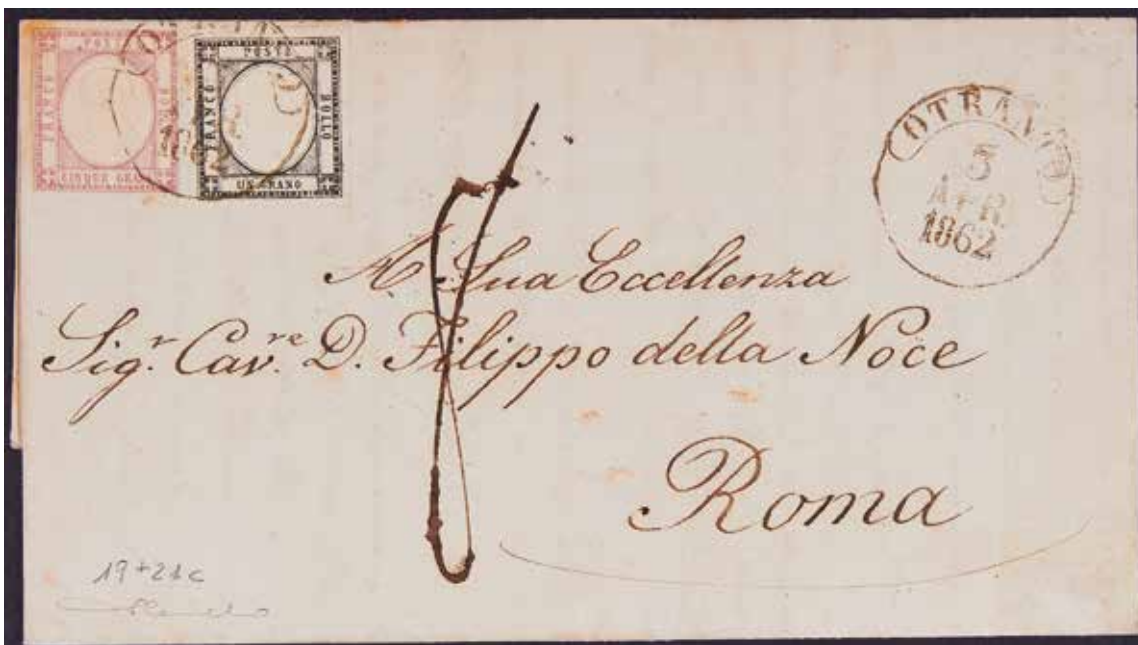 POSTE
FRANCO
BOLLO
CINQUE GRANA
POSTE
FRANCO
BOLLO
UN GRANO
OTRANTO
5
APR.
1862
8
A Sua Eccellenza
Sig.r Cav.re D. Filippo della Noce
Roma
19+21c